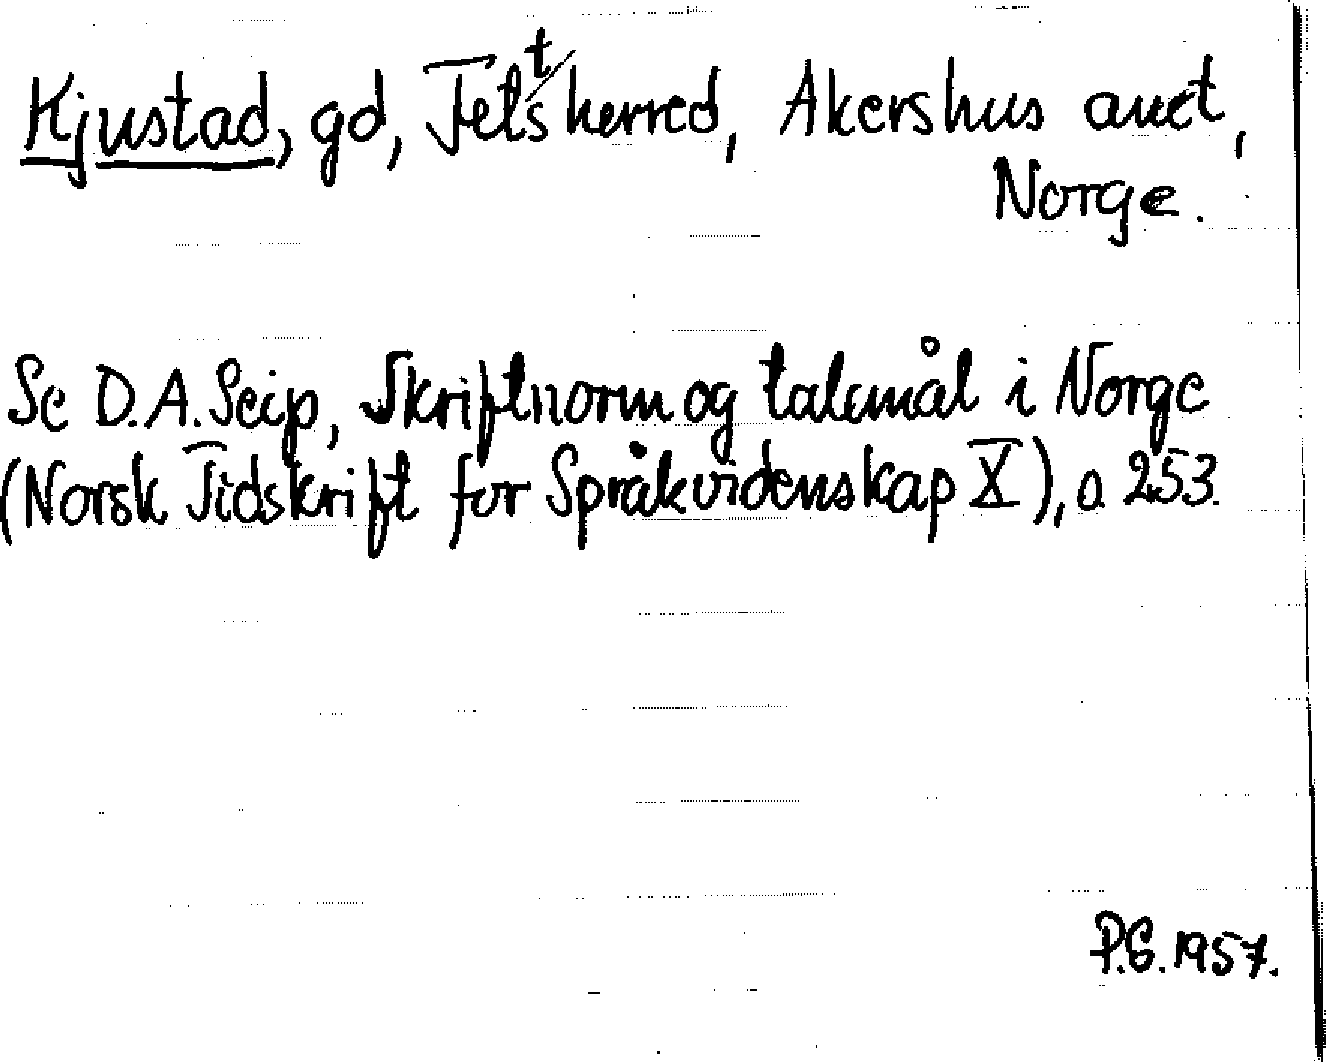 Kjustad, gd, Fetts herred, Akershus amt,
Norge.
Se D.A. Seip, Skriftnorm og talemål i Norge
(Norsk Tidskrift for Språkvidenskap X), s. 253.
P.G. 1957.